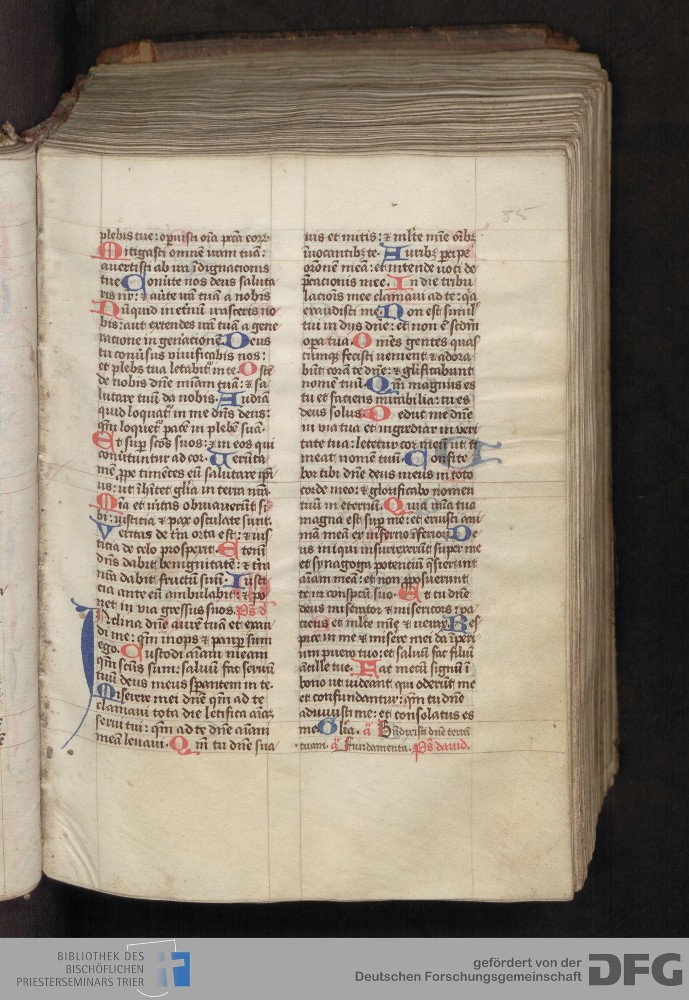 plebis tue: opuisti oīa pctā eorꝝ
Mitigasti omnē iram tuā:
auertisti ab ira īdignationis
tue Conūte nos deus saluta
ris nr̄: ⁊ aūte irā tuā a nobis
Nūquid in et̄nū irasceris no
bis: aut extendes irā tuā a gene
ratione in gen̄ationē Deus
tu conūsus viuificabis nos:
et plebs tua letabit᷑ in te Ostē
de nobis dn̄e miam tuā: ⁊ sa
lutare tuū da nobis. Audiā
quid loquat᷑ in me dn̄s deus:
qm̄ loquet᷑ pacē in plebē suā.
Et sup sc̄os suos: ⁊ in eos qui
conūtuntur ad cor. Uerūta
mē ꝓpe timētes eū salutare ip̄i
us: ut īhītet gl̄ia in terra nr̄a.
Mīa et ūitas obuiauerūt si
bi: iusticia ⁊ pax osculate sunt.
Veritas de tr̄a orta est: ⁊ ius
ticia de celo prospexit. Etenī
dn̄s dabit benignitatē: ⁊ tr̄a
nr̄a dabit fructū suū. Iusti
cia ante eū ambulabit: ⁊ po
net in via gressus suos. Ps̄ d̄
Inclina dn̄e aurē tuā et exau
di me: qm̄ inops ⁊ paup sum
ego. Custodi aīam meam
qm̄ sc̄us sum: saluū fac seruū
tuū deus meus sꝑantem in te.
Miserere mei dn̄e qm̄ ad te
clamaui tota die letifica aīaꝫ
serui tui: qm̄ ad te dn̄e aīam
meā leuaui. Qm̄ tu dn̄e sua
uis et mitis: ⁊ ml̄te mīe oībꝫ
īuocantibꝫ te. Auribꝫ ꝑcipe
or̄onē meā: et intende uoci de
p̄cationis mee. In die tribu
lacionis mee clamaui ad te: qa
exaudisti me. Non est simil'
tui in dijs dn̄e: et non ē sc̄dm
opa tua. Omēs gentes quas
cūmqꝫ fecisti uenient ⁊ adora
būt corā te dn̄e: ⁊ gl̄ificabunt
nomē tuū. Qm̄ magnus es
tu et faciens mirabilia: tu es
deus solus. Deduc me dn̄e
in via tua et ingrediar in veri
tate tua: letetur cor meū ut ti
meat nomē tuū. Confite
bor tibi dn̄e deus meus in toto
corde meo: ⁊ glorificabo nomen
tuū in eternū. Quia mīa tua
magna est sup me: et eruisti ani
mā meā ex inferno īferiori. De
us iniqui insurrexerūt super me
et synagoga potentiū q̄sierunt
aīam meā: et non ꝓposuerunt
te in conspcū suo. Et tu dn̄e
deus miserator ⁊ misericors: pa
ciens et ml̄te mīe ⁊ uerax. Res
pice in me ⁊ misere mei da īperi
um puero tuo: et saluū fac filiū
ancille tue. Fac mecū signū ī
bono ut uideant qui oderūt me
et confundantur: qm̄ tu dn̄e
adiuuisti me: et consolatus es
me Glīa. ā Bn̄dixisti dn̄e terrā
tuam. ā Fundamenta. Ps̄ dauid.
85
BIBLIOTHEK DES
BISCHÖFLICHEN
PRIESTERSEMINARS TRIER
gefördert von der
Deutschen Forschungsgemeinschaft
DFG